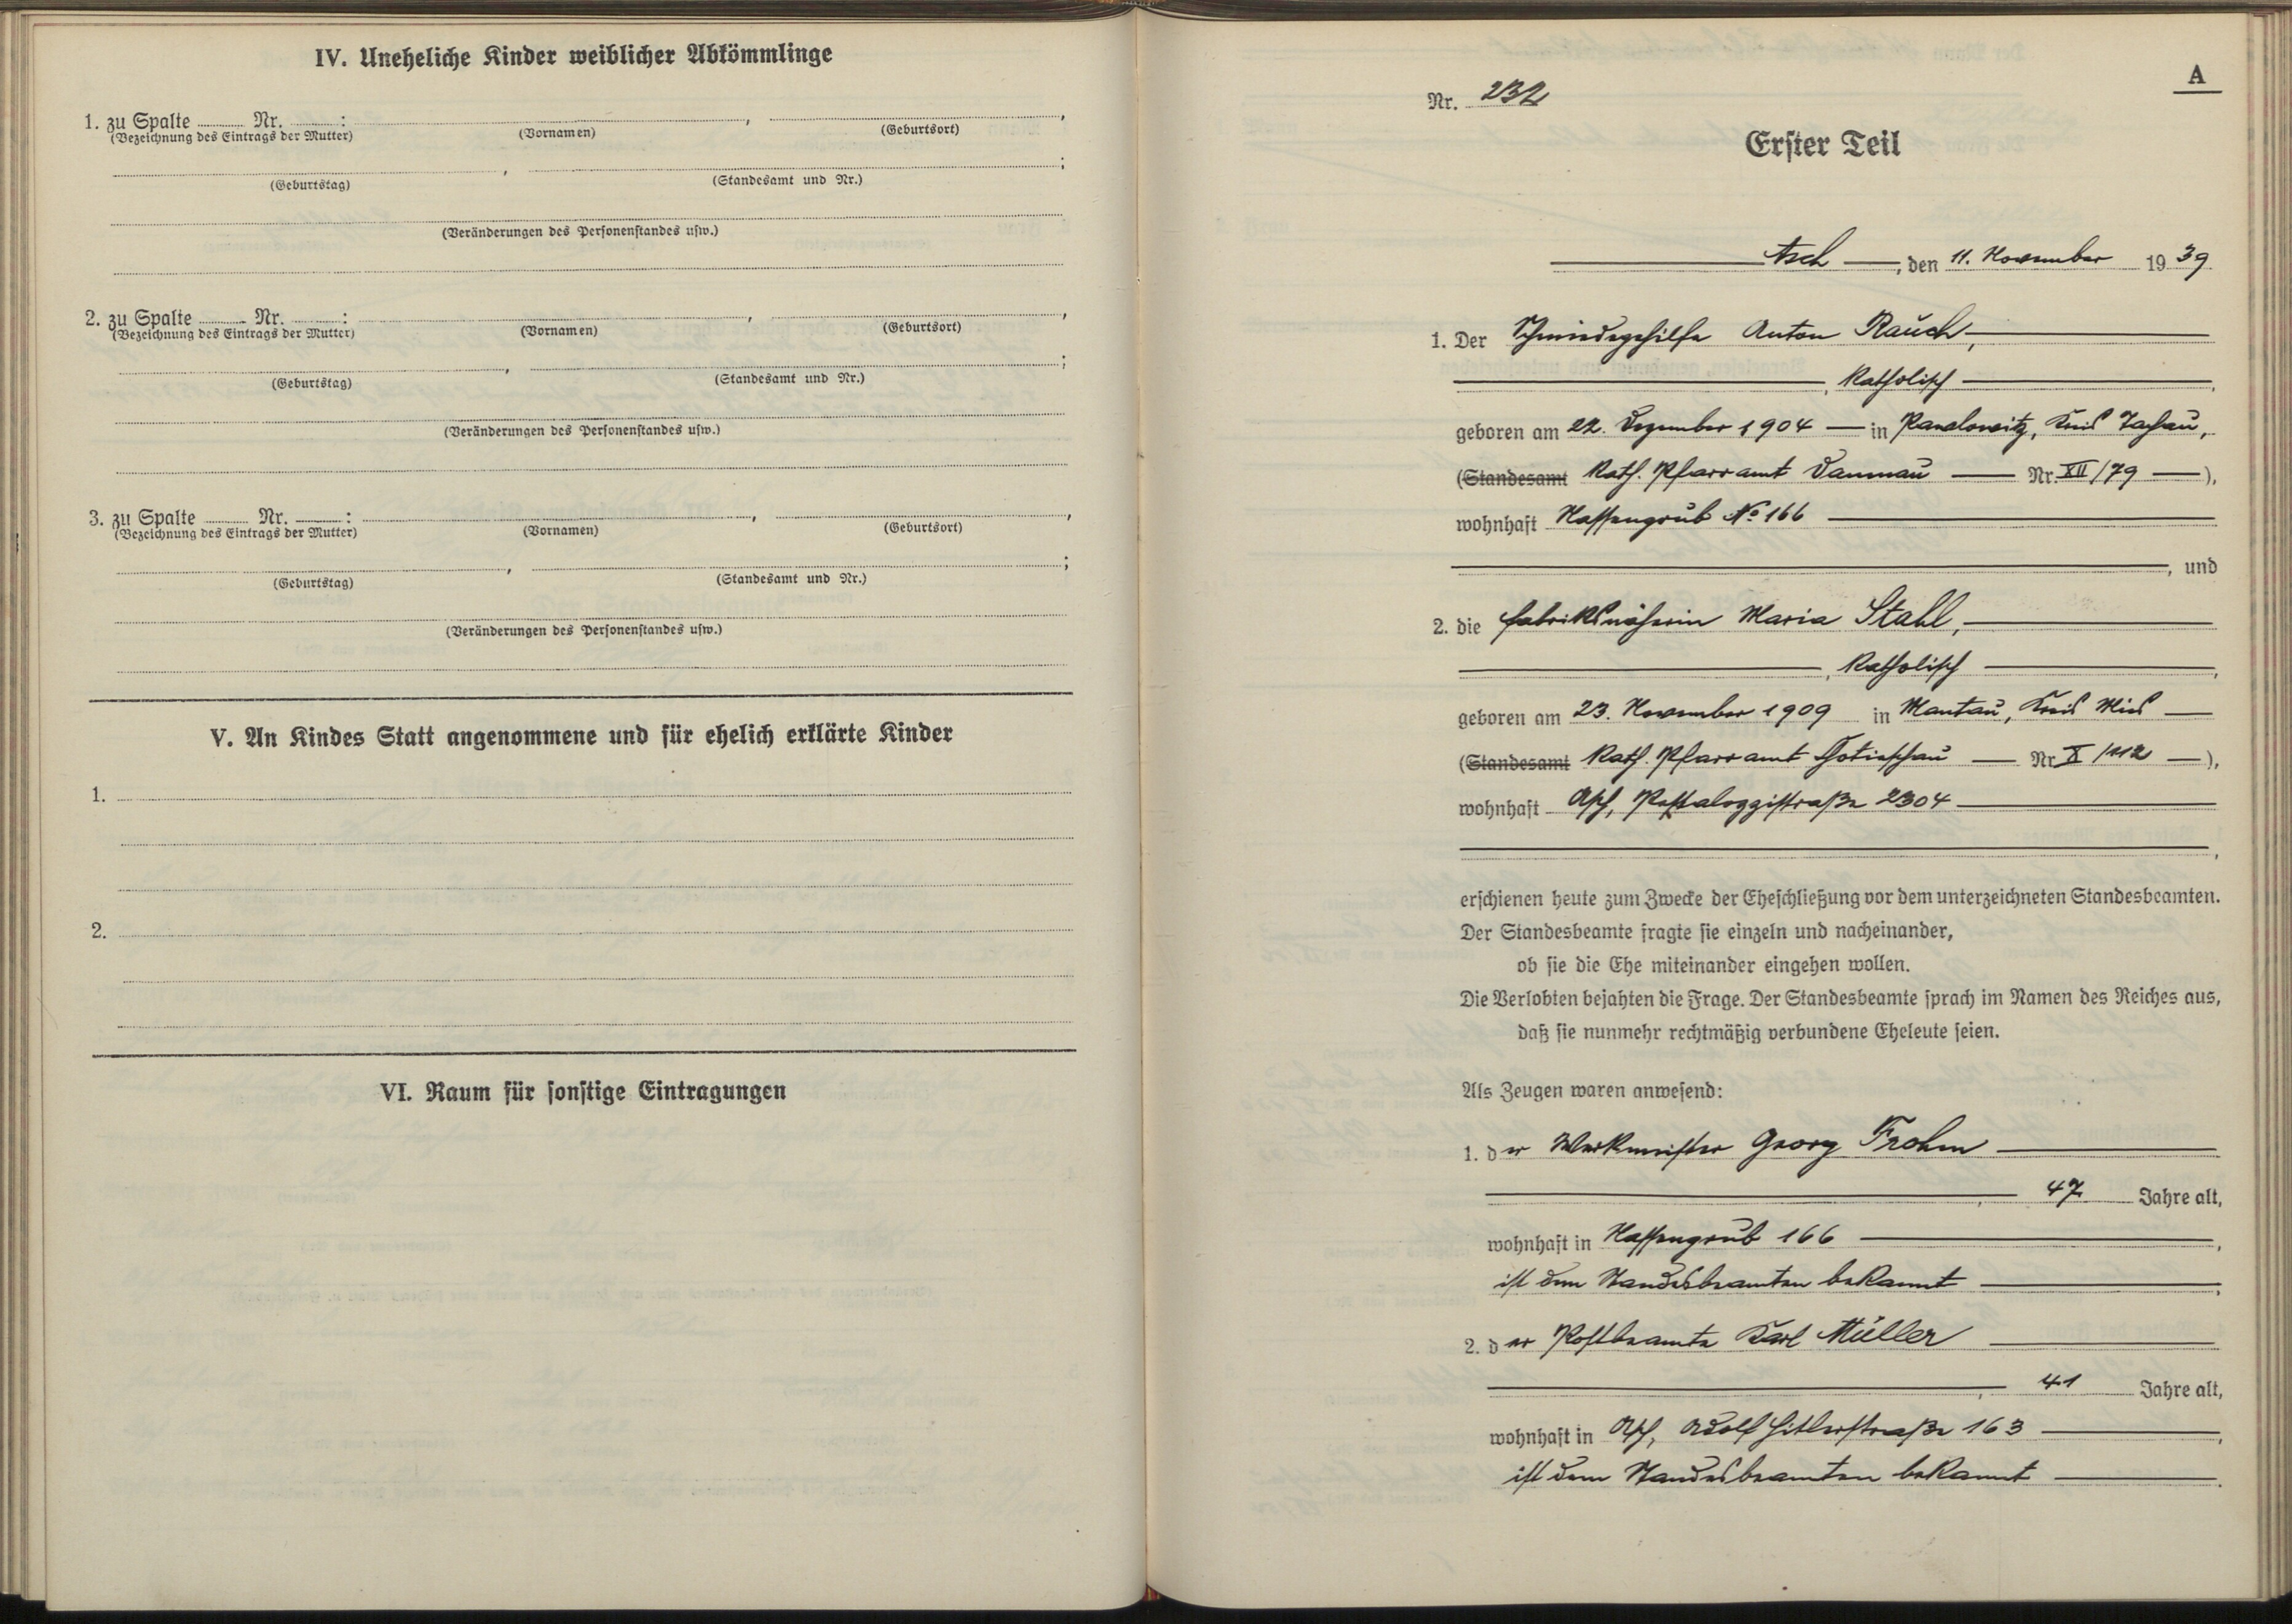 IV. Uneheliche Kinder weiblicher Abkömmlinge
1. zu Spalte ........ Nr. ........:
(Bezeichnung des Eintrags der Mutter) (Vornamen) (Geburtsort)
(Geburtstag) (Standesamt und Nr.)
(Veränderungen des Personenstandes usw.)
2. zu Spalte ........ Nr. ........:
(Bezeichnung des Eintrags der Mutter) (Vornamen) (Geburtsort)
(Geburtstag) (Standesamt und Nr.)
(Veränderungen des Personenstandes usw.)
3. zu Spalte ........ Nr. ........:
(Bezeichnung des Eintrags der Mutter) (Vornamen) (Geburtsort)
(Geburtstag) (Standesamt und Nr.)
(Veränderungen des Personenstandes usw.)
V. An Kindes Statt angenommene und für ehelich erklärte Kinder
1.
2.
VI. Raum für sonstige Eintragungen
A
Nr. 232
Erster Teil
Asch, den 11. November 1939
1. Der Schmiedegehilfe Anton Rauch,
, Katholisch ,
geboren am 22. Dezember 1904 in , Kreis Tachau,
(Standesamt Kath. Pfarramt Damnau Nr. XII/79 ),
wohnhaft Hassengrub No 166
, und
2. die Fabriksnäherin Maria Stahl,
, Katholisch ,
geboren am 23. November 1909 in Mantau, Kreis Mies
(Standesamt Kath. Pfarramt Chotieschau Nr. X/112 ),
wohnhaft Asch, Pestalozzistraße 2304
,
erschienen heute zum Zwecke der Eheschließung vor dem unterzeichneten Standesbeamten.
Der Standesbeamte fragte sie einzeln und nacheinander,
ob sie die Ehe miteinander eingehen wollen.
Die Verlobten bejahten die Frage. Der Standesbeamte sprach im Namen des Reiches aus,
daß sie nunmehr rechtmäßig verbundene Eheleute seien.
Als Zeugen waren anwesend:
1. der Werkmeister Georg Frohm
, 47 Jahre alt,
wohnhaft in Hassengrub 166 ,
ist dem Standesbeamten bekannt ;
2. der Postbeamte Karl Müller
, 41 Jahre alt,
wohnhaft in Asch, Adolf Hitlerstraße 163 ,
ist dem Standesbeamten bekannt .